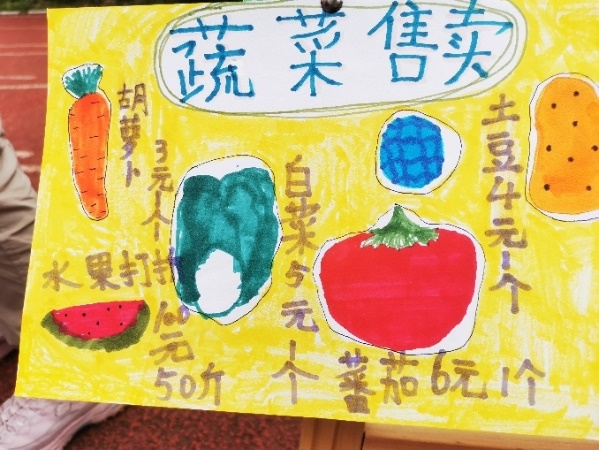 蔬菜售卖
胡萝卜
3元1个
白菜5元1个
土豆4元1个
水果打折
100元
50斤
番茄6元1个